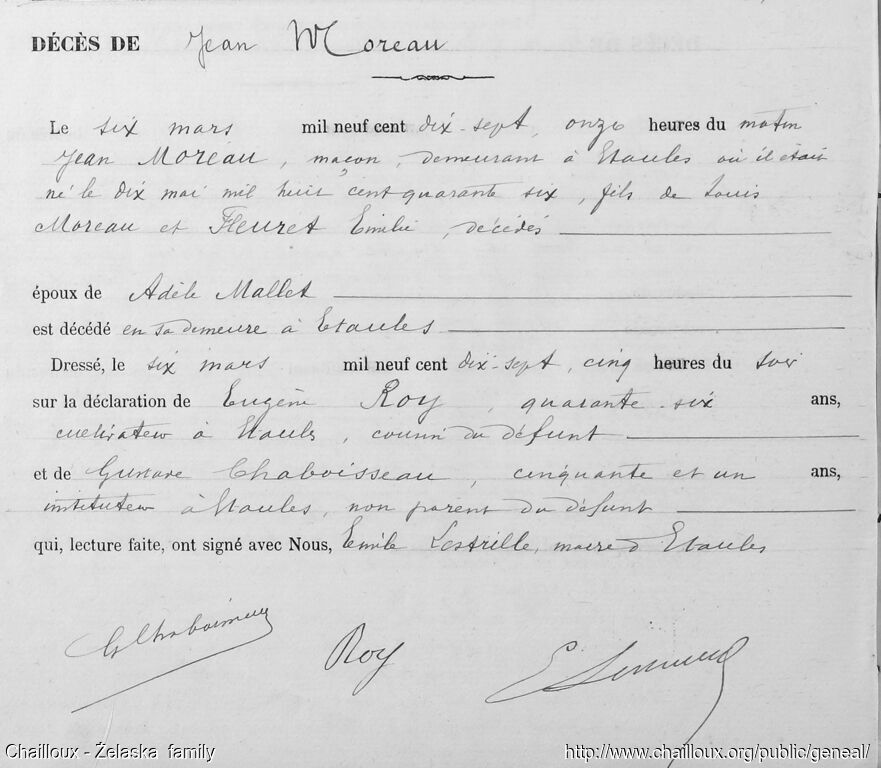 DÉCÈS DE Jean Moreau
Le six mars mil neuf cent dix-sept, onze heures du matin
Jean Moreau, maçon, demeurant à Etaules où il était
né le dix mai mil huit cent quarante six, fils de Louis
Moreau et Fleuret Emilie, décédés
époux de Adèle Mallet
est décédé en sa demeure à Etaules
Dressé, le six mars mil neuf cent dix-sept, cinq heures du soir
sur la déclaration de Eugène Roy, quarante-six ans,
cultivateur à Etaules, cousin du défunt
et de Gustave Chaboisseau, cinquante et un ans,
instituteur à Etaules, non parent du défunt
qui, lecture faite, ont signé avec Nous, Emile Lestrille, maire d'Etaules
G Chaboisseau Roy E
Chailloux - Żelaska family http://www.chailloux.org/public/geneal/